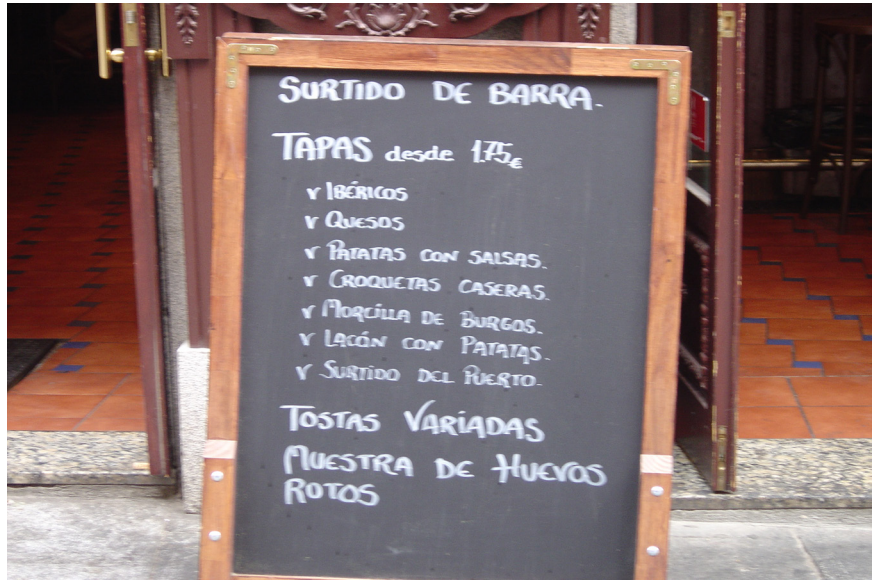 SURTIDO DE BARRA.
TAPAS desde 1.75€
v IBÉRICOS
v QUESOS
v PATATAS CON SALSAS.
v CROQUETAS CASERAS.
v MORCILLA DE BURGOS.
v LACÓN CON PATATAS.
v SURTIDO DEL PUERTO.
TOSTAS VARIADAS
MUESTRA DE HUEVOS
ROTOS